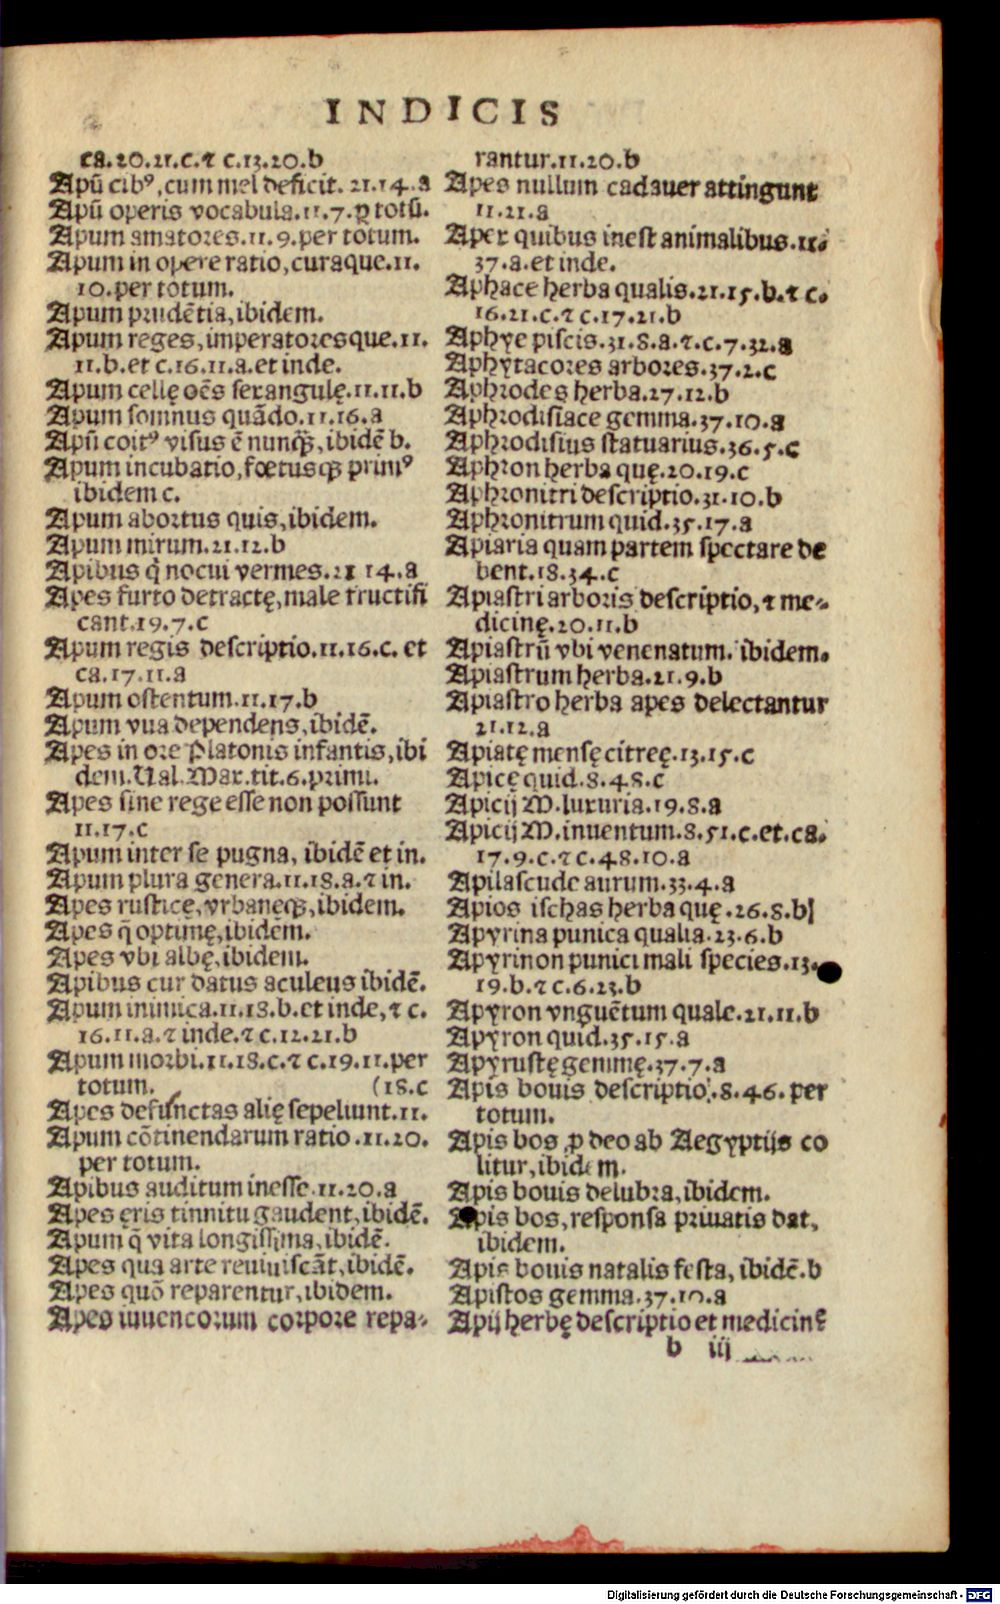 INDICIS
ca.20.21.c.⁊ c.13.20.b
Apū cibꝰ,cum mel deficit. 21.14.a
Apū operis vocabula.11.7.ꝑ totū.
Apum amatores.11.9.per totum.
Apum in opere ratio,curaque.11.
10.per totum.
Apum prudētia,ibidem.
Apum reges,imperatoresque.11.
11.b.et c.16.11.a.et inde.
Apum cellę oēs sexangulę.11.11.b
Apum somnus quādo.11.16.a
Apū coitꝰ visus ē nunqꝫ,ibidē b.
Apum incubatio,fœtusqꝫ primꝰ
ibidem c.
Apum abortus quis,ibidem.
Apum mirum.21.12.b
Apibus q̄ nocui vermes.21 14.a
Apes furto detractę,male fructifi
cant.19.7.c
Apum regis descriptio.11.16.c. et
ca.17.11.a
Apum ostentum.11.17.b
Apum vua dependens,ibidē.
Apes in ore Platonis infantis,ibi
dem.Ual.Max.tit.6.primi.
Apes sine rege esse non possunt
11.17.c
Apum inter se pugna, ibidē et in.
Apum plura genera.11.18.a.⁊ in.
Apes rusticę,vrbanęqꝫ,ibidem.
Apes q̄ optimę,ibidem.
Apes vbi albę,ibidem.
Apibus cur datus aculeus ibidē.
Apum inimica.11.18.b.et inde,⁊ c.
16.11.a.⁊ inde.⁊ c.12.21.b
Apum morbi.11.18.c.⁊ c.19.11.per
totum. (18.c
Apes defunctas alię sepeliunt.11.
Apum cōtinendarum ratio.11.20.
per totum.
Apibus auditum inesse.11.20.a
Apes ęris tinnitu gaudent,ibidē.
Apum q̄ vita longissima,ibidē.
Apes qua arte reuiuiscāt,ibidē.
Apes quō reparentur,ibidem.
Apes iuuencorum corpore repa-
rantur.11.20.b
Apes nullum cadauer attingunt
11.21.a
Apex quibus inest animalibus.11.
37.a.et inde.
Aphace herba qualis.21.15.b.⁊ c.
16.21.c.⁊ c.17.21.b
Aphye piscis.31.8.a.⁊.c.7.32.a
Aphytacores arbores.37.2.c
Aphrodes herba.27.12.b
Aphrodisiace gemma.37.10.a
Aphrodisius statuarius.36.5.c
Aphron herba quę.20.19.c
Aphronitri descriptio.31.10.b
Aphronitrum quid.35.17.a
Apiaria quam partem spectare de
bent.18.34.c
Apiastri arboris descriptio,⁊ me-
dicinę.20.11.b
Apiastrū vbi venenatum. ibidem.
Apiastrum herba.21.9.b
Apiastro herba apes delectantur
21.12.a
Apiatę mensę citreę.13.15.c
Apicę quid.8.48.c
Apicij M.luxuria.19.8.a
Apicij M.inuentum.8.51.c.et.ca.
17.9.c.⁊ c.48.10.a
Apilascude aurum.33.4.a
Apios ischas herba quę.26.8.b
Apyrina punica qualia.23.6.b
Apyrinon punici mali species.13.
19.b.⁊ c.6.23.b
Apyron vnguētum quale.21.11.b
Apyron quid.35.15.a
Apyrustę gemmę.37.7.a
Apis bouis descriptio.8.46.per
totum.
Apis bos ꝓ deo ab Aegyptijs co
litur,ibidem.
Apis bouis delubra,ibidem.
Apis bos,responsa priuatis dat,
ibidem.
Apis bouis natalis festa, ibidē.b
Apistos gemma.37.10.a
Apij herbę descriptio et medicinę
b iij
Digitalisierung gefördert durch die Deutsche Forschungsgemeinschaft - DFG